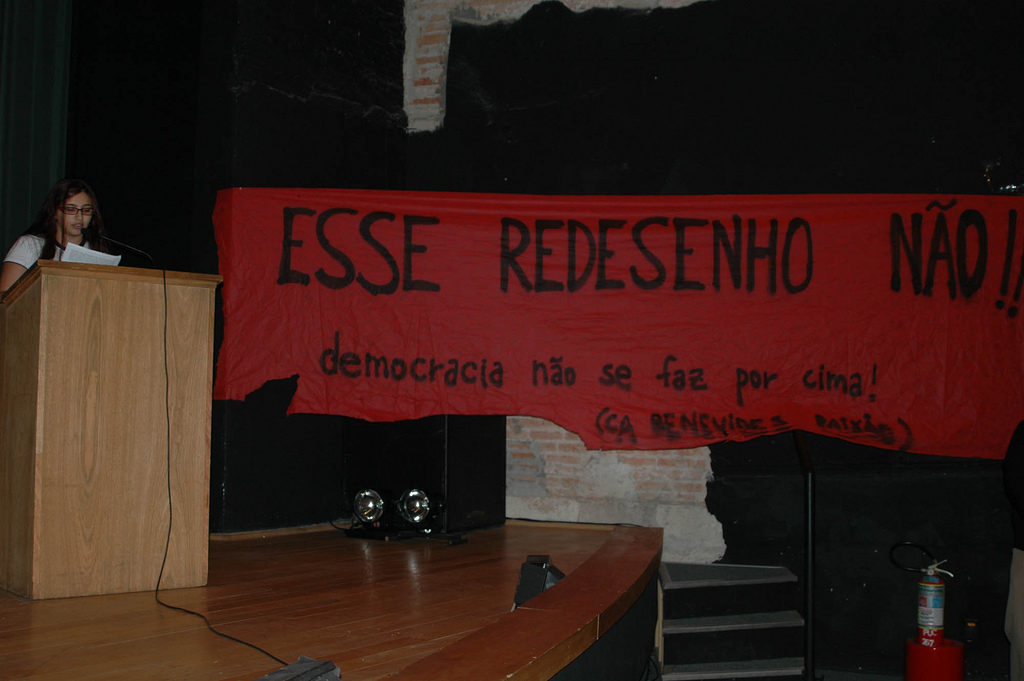 ESSE REDESENHO NÃO!!
democracia não se faz por cima!
(CA BENEVIDES PAIXÃO)
PUC
267